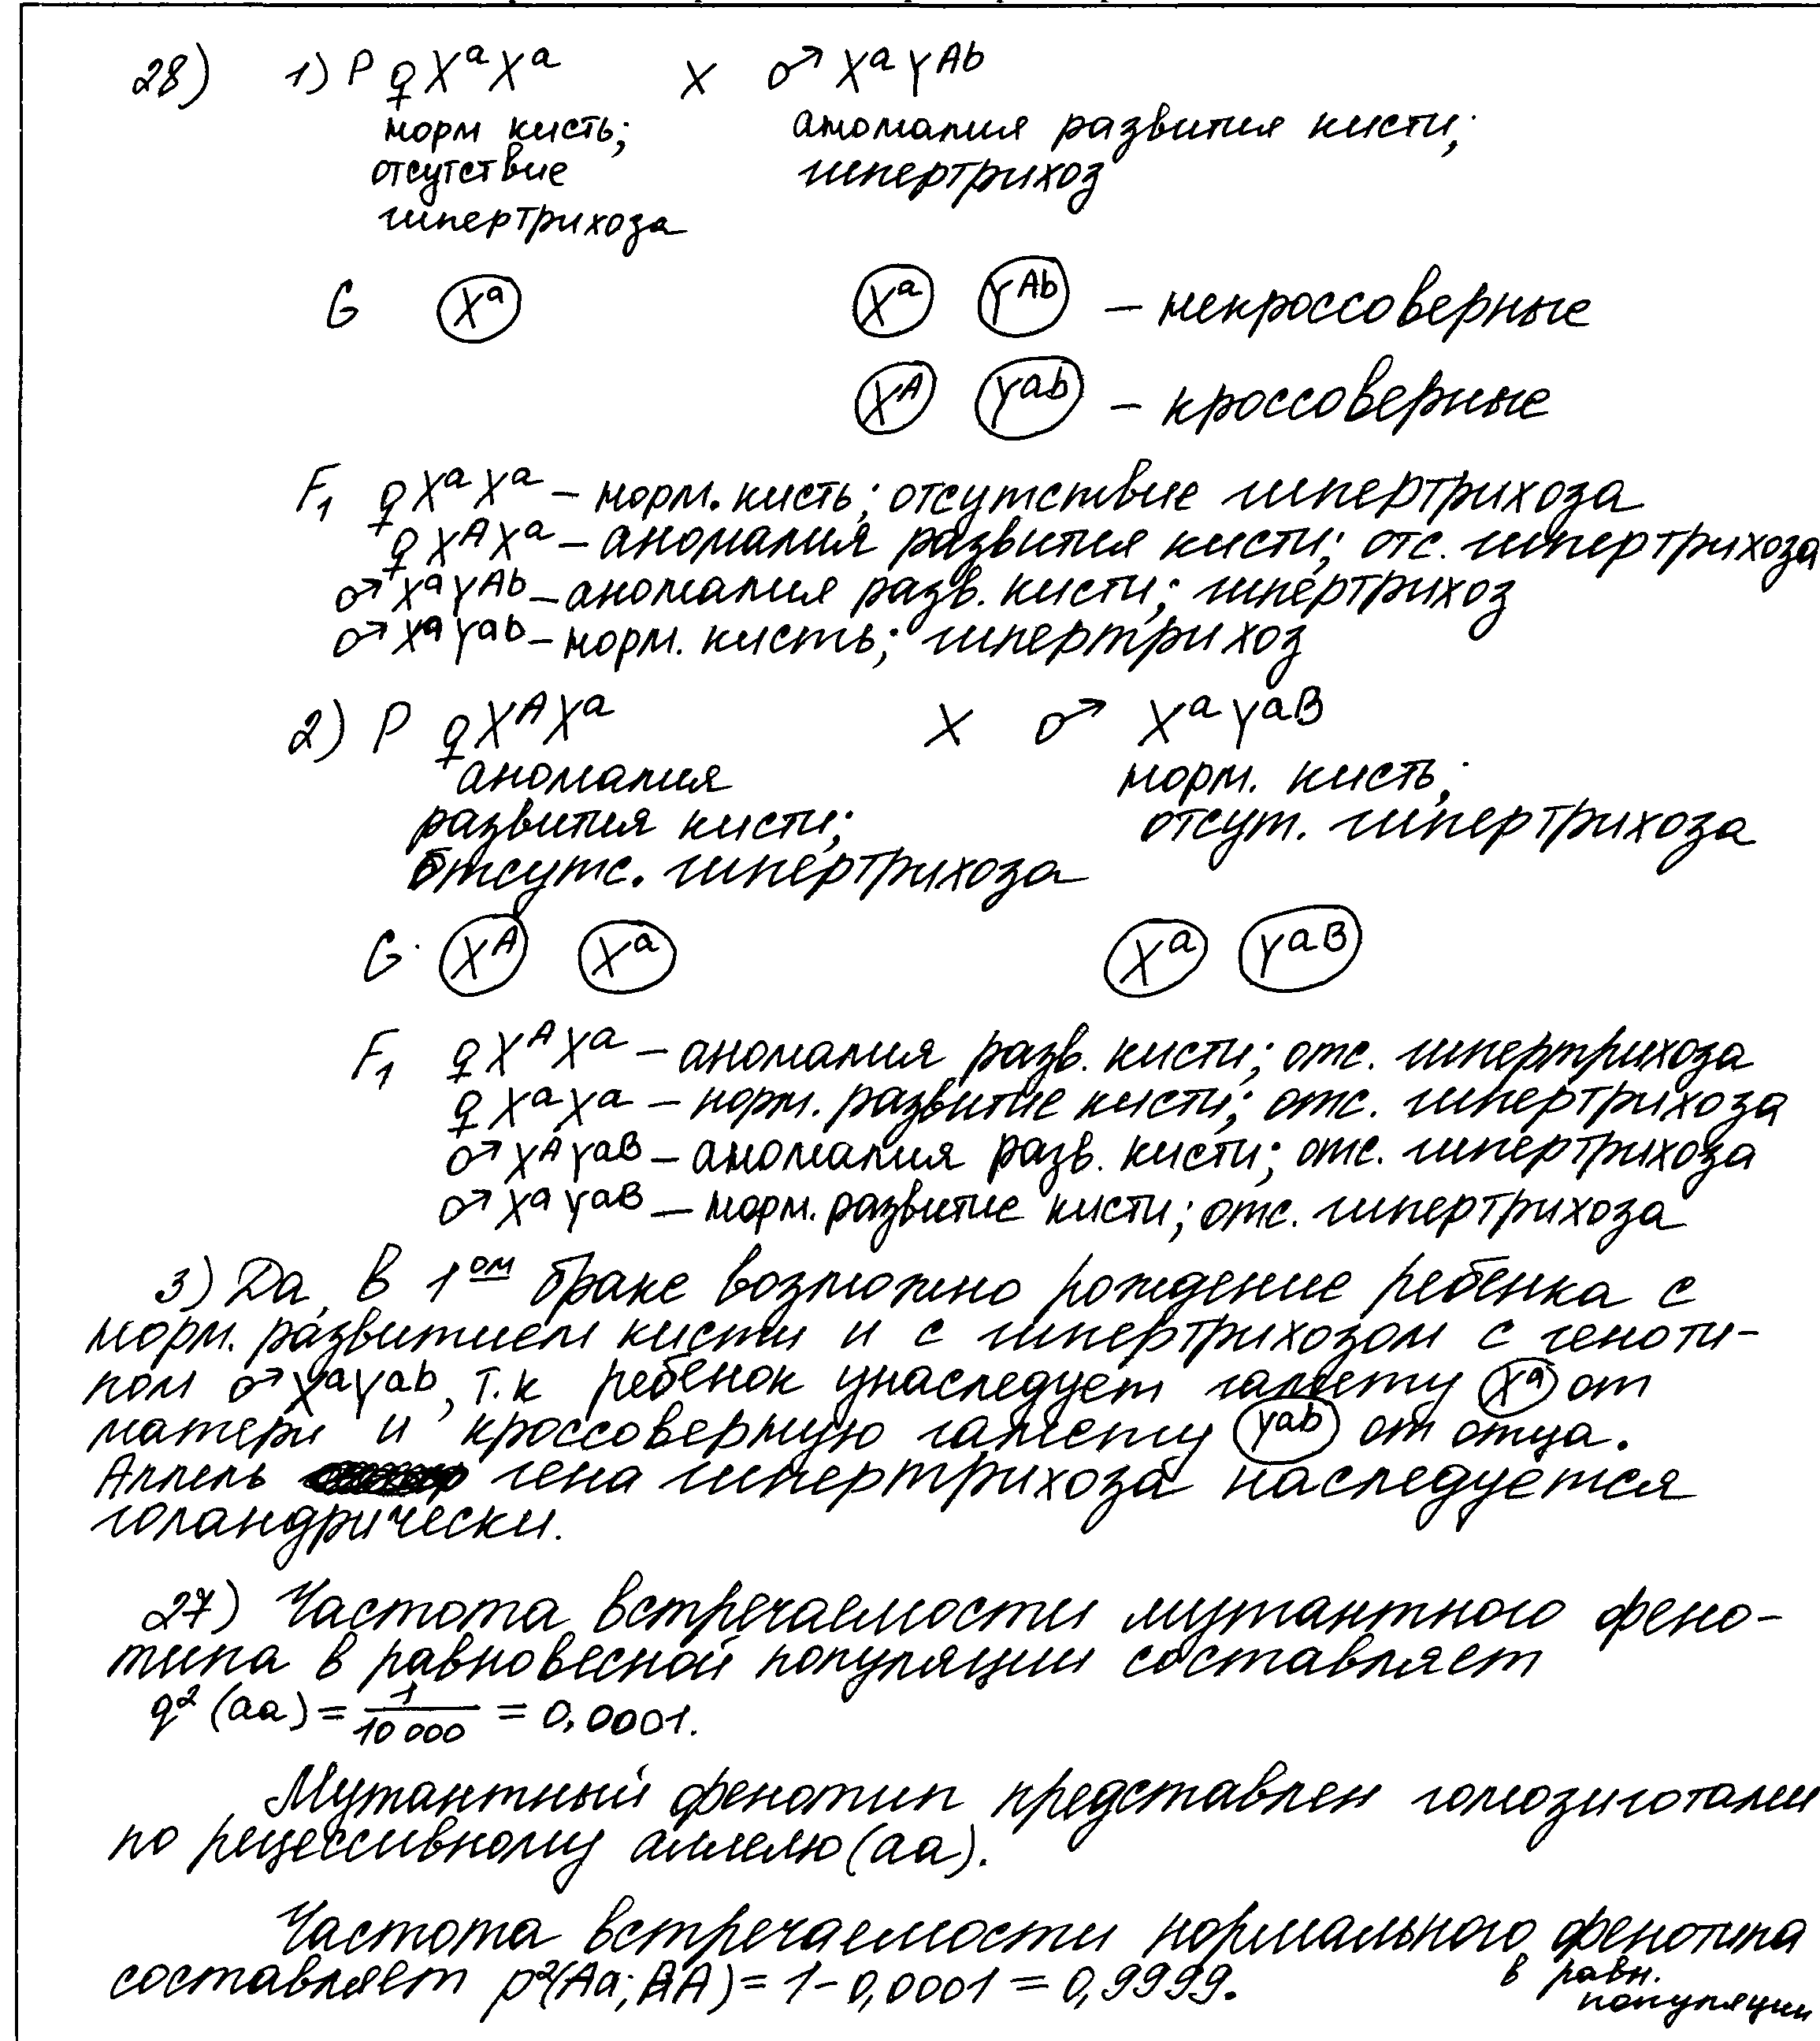 28) 1) P ♀ XᵃXᵃ х ♂ XᵃYᴬᵇ
норм кисть; аномалия развития кисти;
отсутствие гипертрихоз
гипертрихоза
G Xᵃ Xᵃ Yᴬᵇ – некроссоверные
Xᴬ Yᵃᵇ – кроссоверные
F₁ ♀ XᵃXᵃ – норм. кисть; отсутствие гипертрихоза
♀ XᴬXᵃ – аномалия развития кисти; отс. гипертрихоза
♂ XᵃYᴬᵇ – аномалия разв. кисти; гипертрихоз
♂ XᵃYᵃᵇ – норм. кисть; гипертрихоз
2) P ♀ XᴬXᵃ х ♂ XᵃYᵃᴮ
аномалия норм. кисть;
развития кисти; отсут. гипертрихоза
отсутс. гипертрихоза
G Xᴬ Xᵃ Xᵃ Yᵃᴮ
F₁ ♀ XᴬXᵃ – аномалия разв. кисти; отс. гипертрихоза
♀ XᵃXᵃ – норм. развитие кисти; отс. гипертрихоза
♂ XᴬYᵃᴮ – аномалия разв. кисти; отс. гипертрихоза
♂ XᵃYᵃᴮ – норм. развитие кисти; отс. гипертрихоза
3) Да, в 1ᵒᵐ браке возможно рождение ребенка с
норм. развитием кисти и с гипертрихозом с геноти-
пом ♂ XᵃYᵃᵇ, т.к ребенок унаследует гамету Xᵃ от
матери и кроссоверную гамету Yᵃᵇ от отца.
Аллель гена гипертрихоза наследуется
голандрически.
27) Частота встречаемости мутантного фено-
типа в равновесной популяции составляет
q² (aa) = 1/10 000 = 0,0001.
Мутантный фенотип представлен гомозиготами
по рецессивному аллелю (aa).
Частота встречаемости нормального фенотипа
в равн.
популяции
составляет p²(Aa; AA) = 1 – 0,0001 = 0,9999.